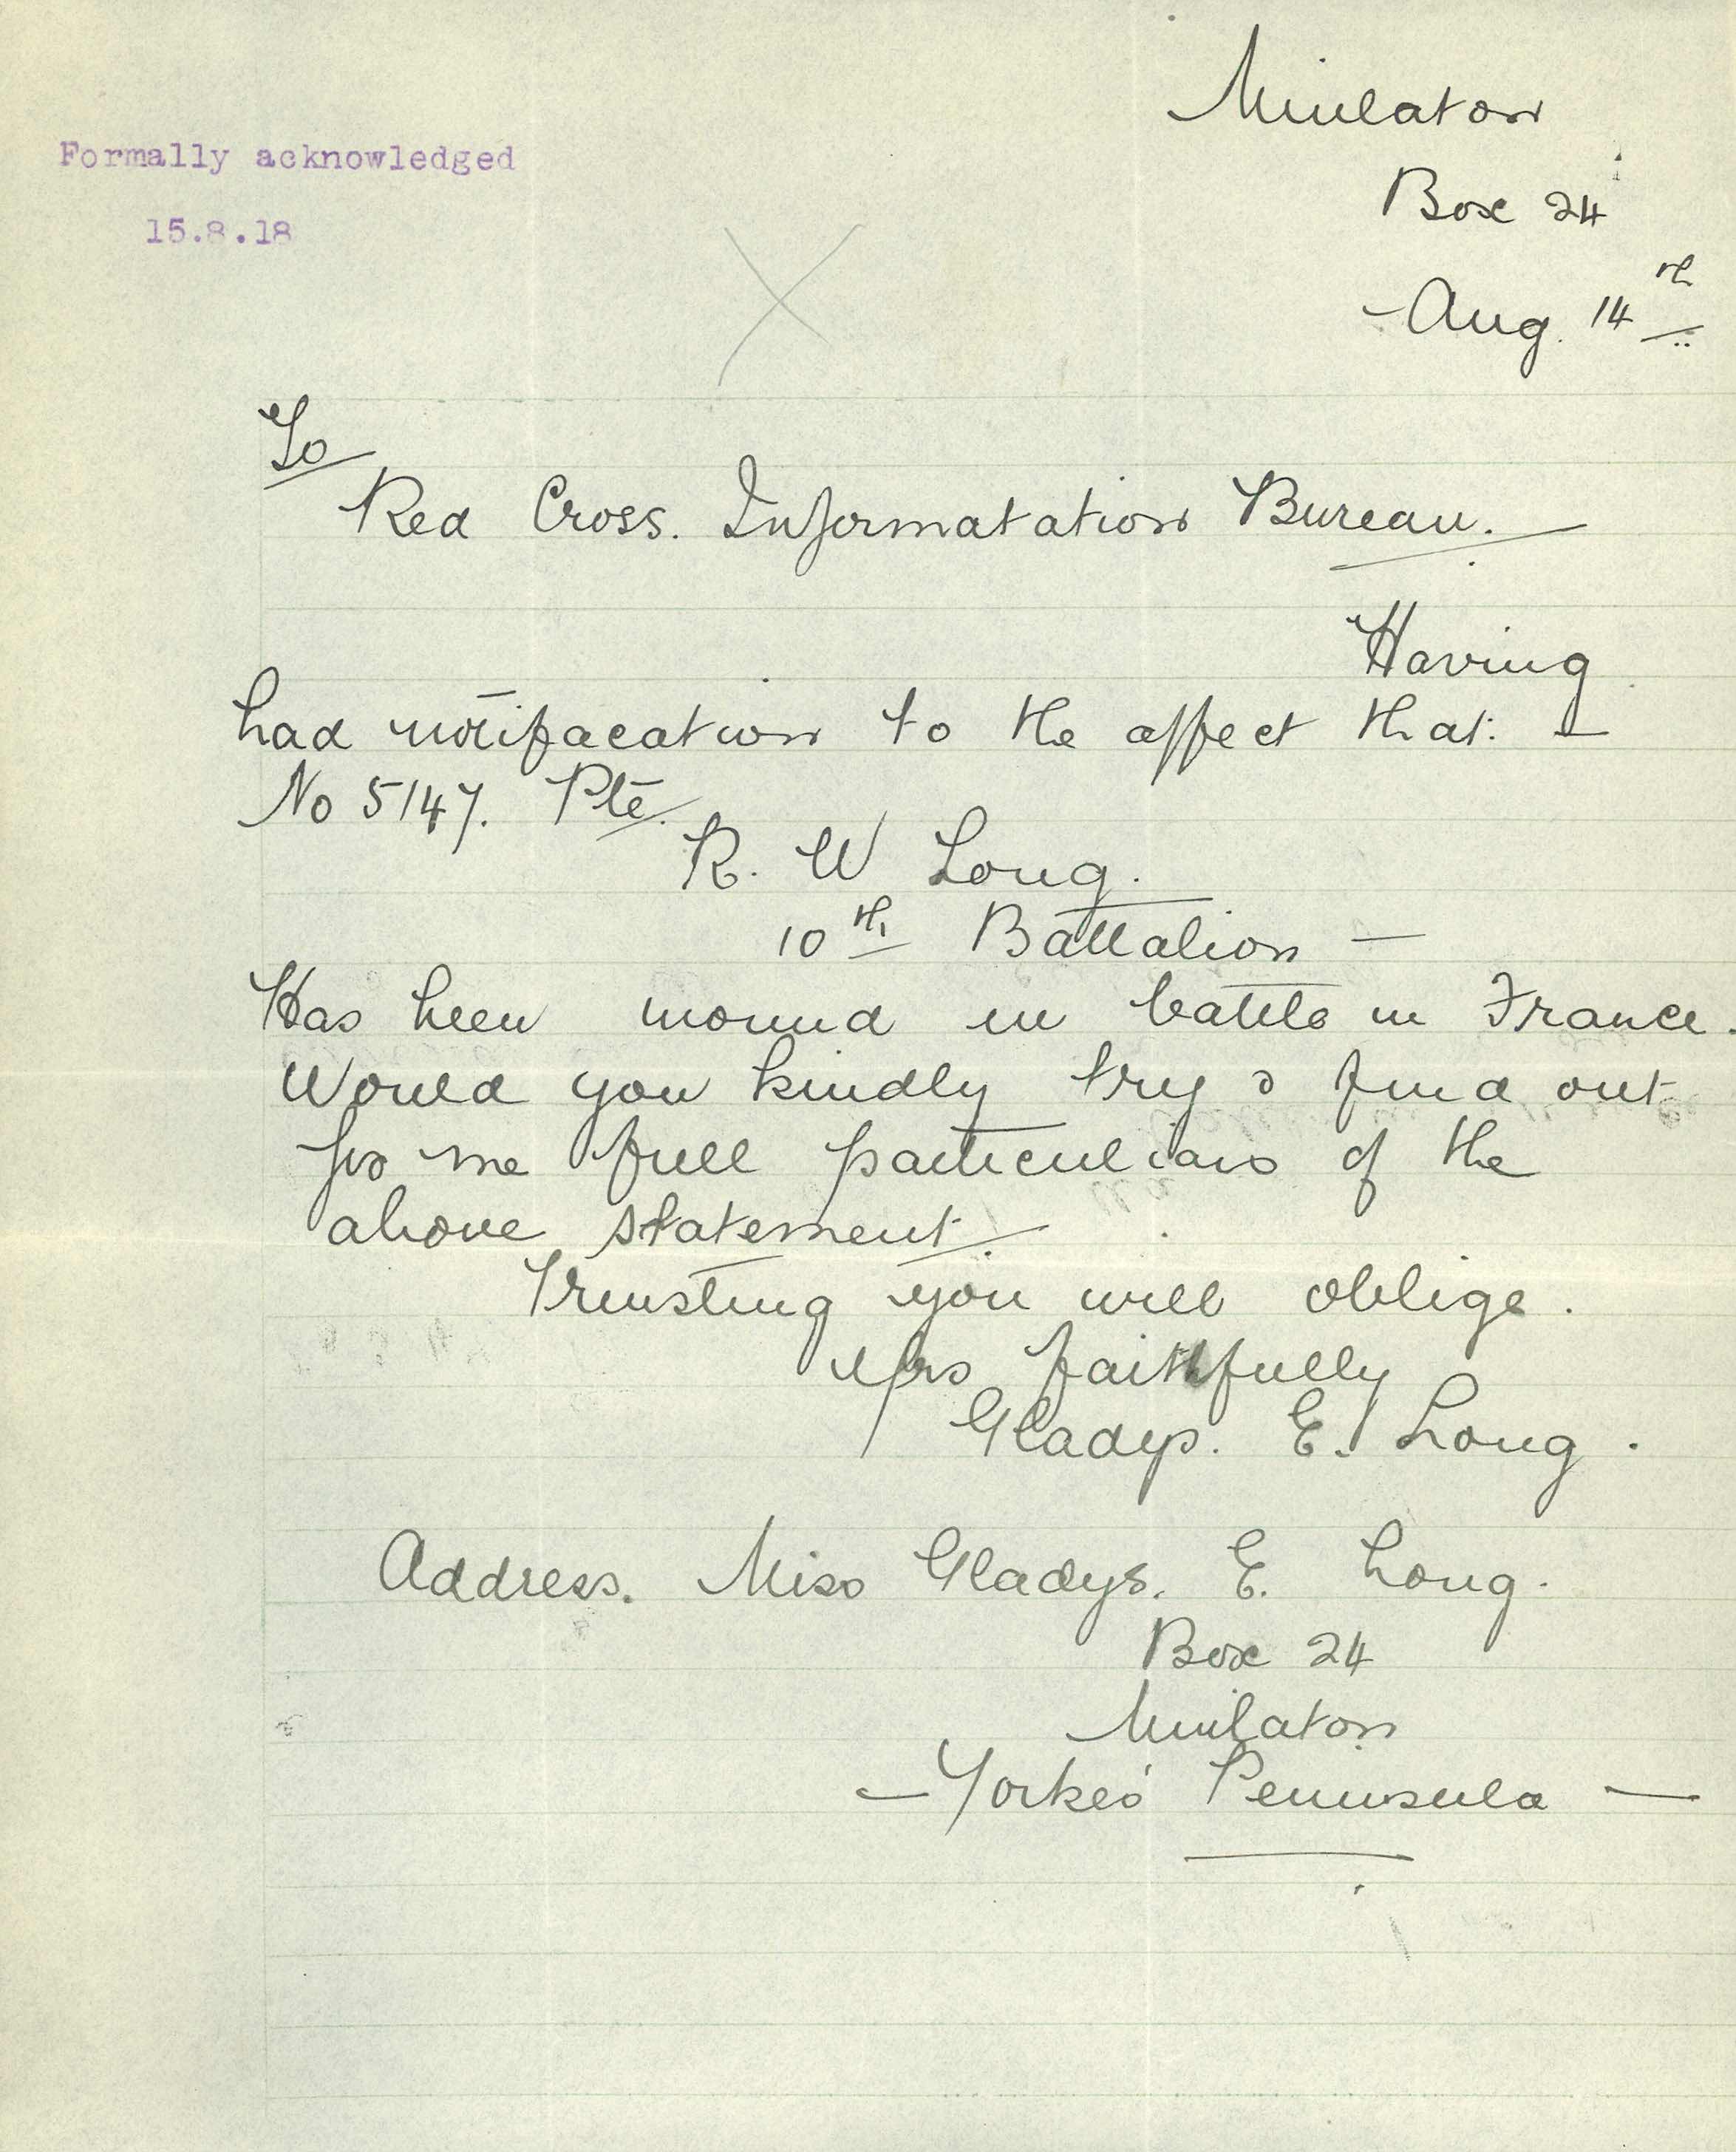 Minlaton
Box 24
Aug. 14th
Formally acknowledged
15.8.18
To
Red Cross. Informatation Bureau.
Having
had notifacation to the affect that. —
No 5147. Pte.
R. W Long.
10th Battalion —
Has been wound in battle in France.
Would you kindly try & find out
for me full particulars of the
above statement.
Trusting you will oblige.
Yrs faithfully
Gladys. E. Long.
Address. Miss Gladys. E. Long.
Box 24
Minlaton
— Yorkes' Peninsula —